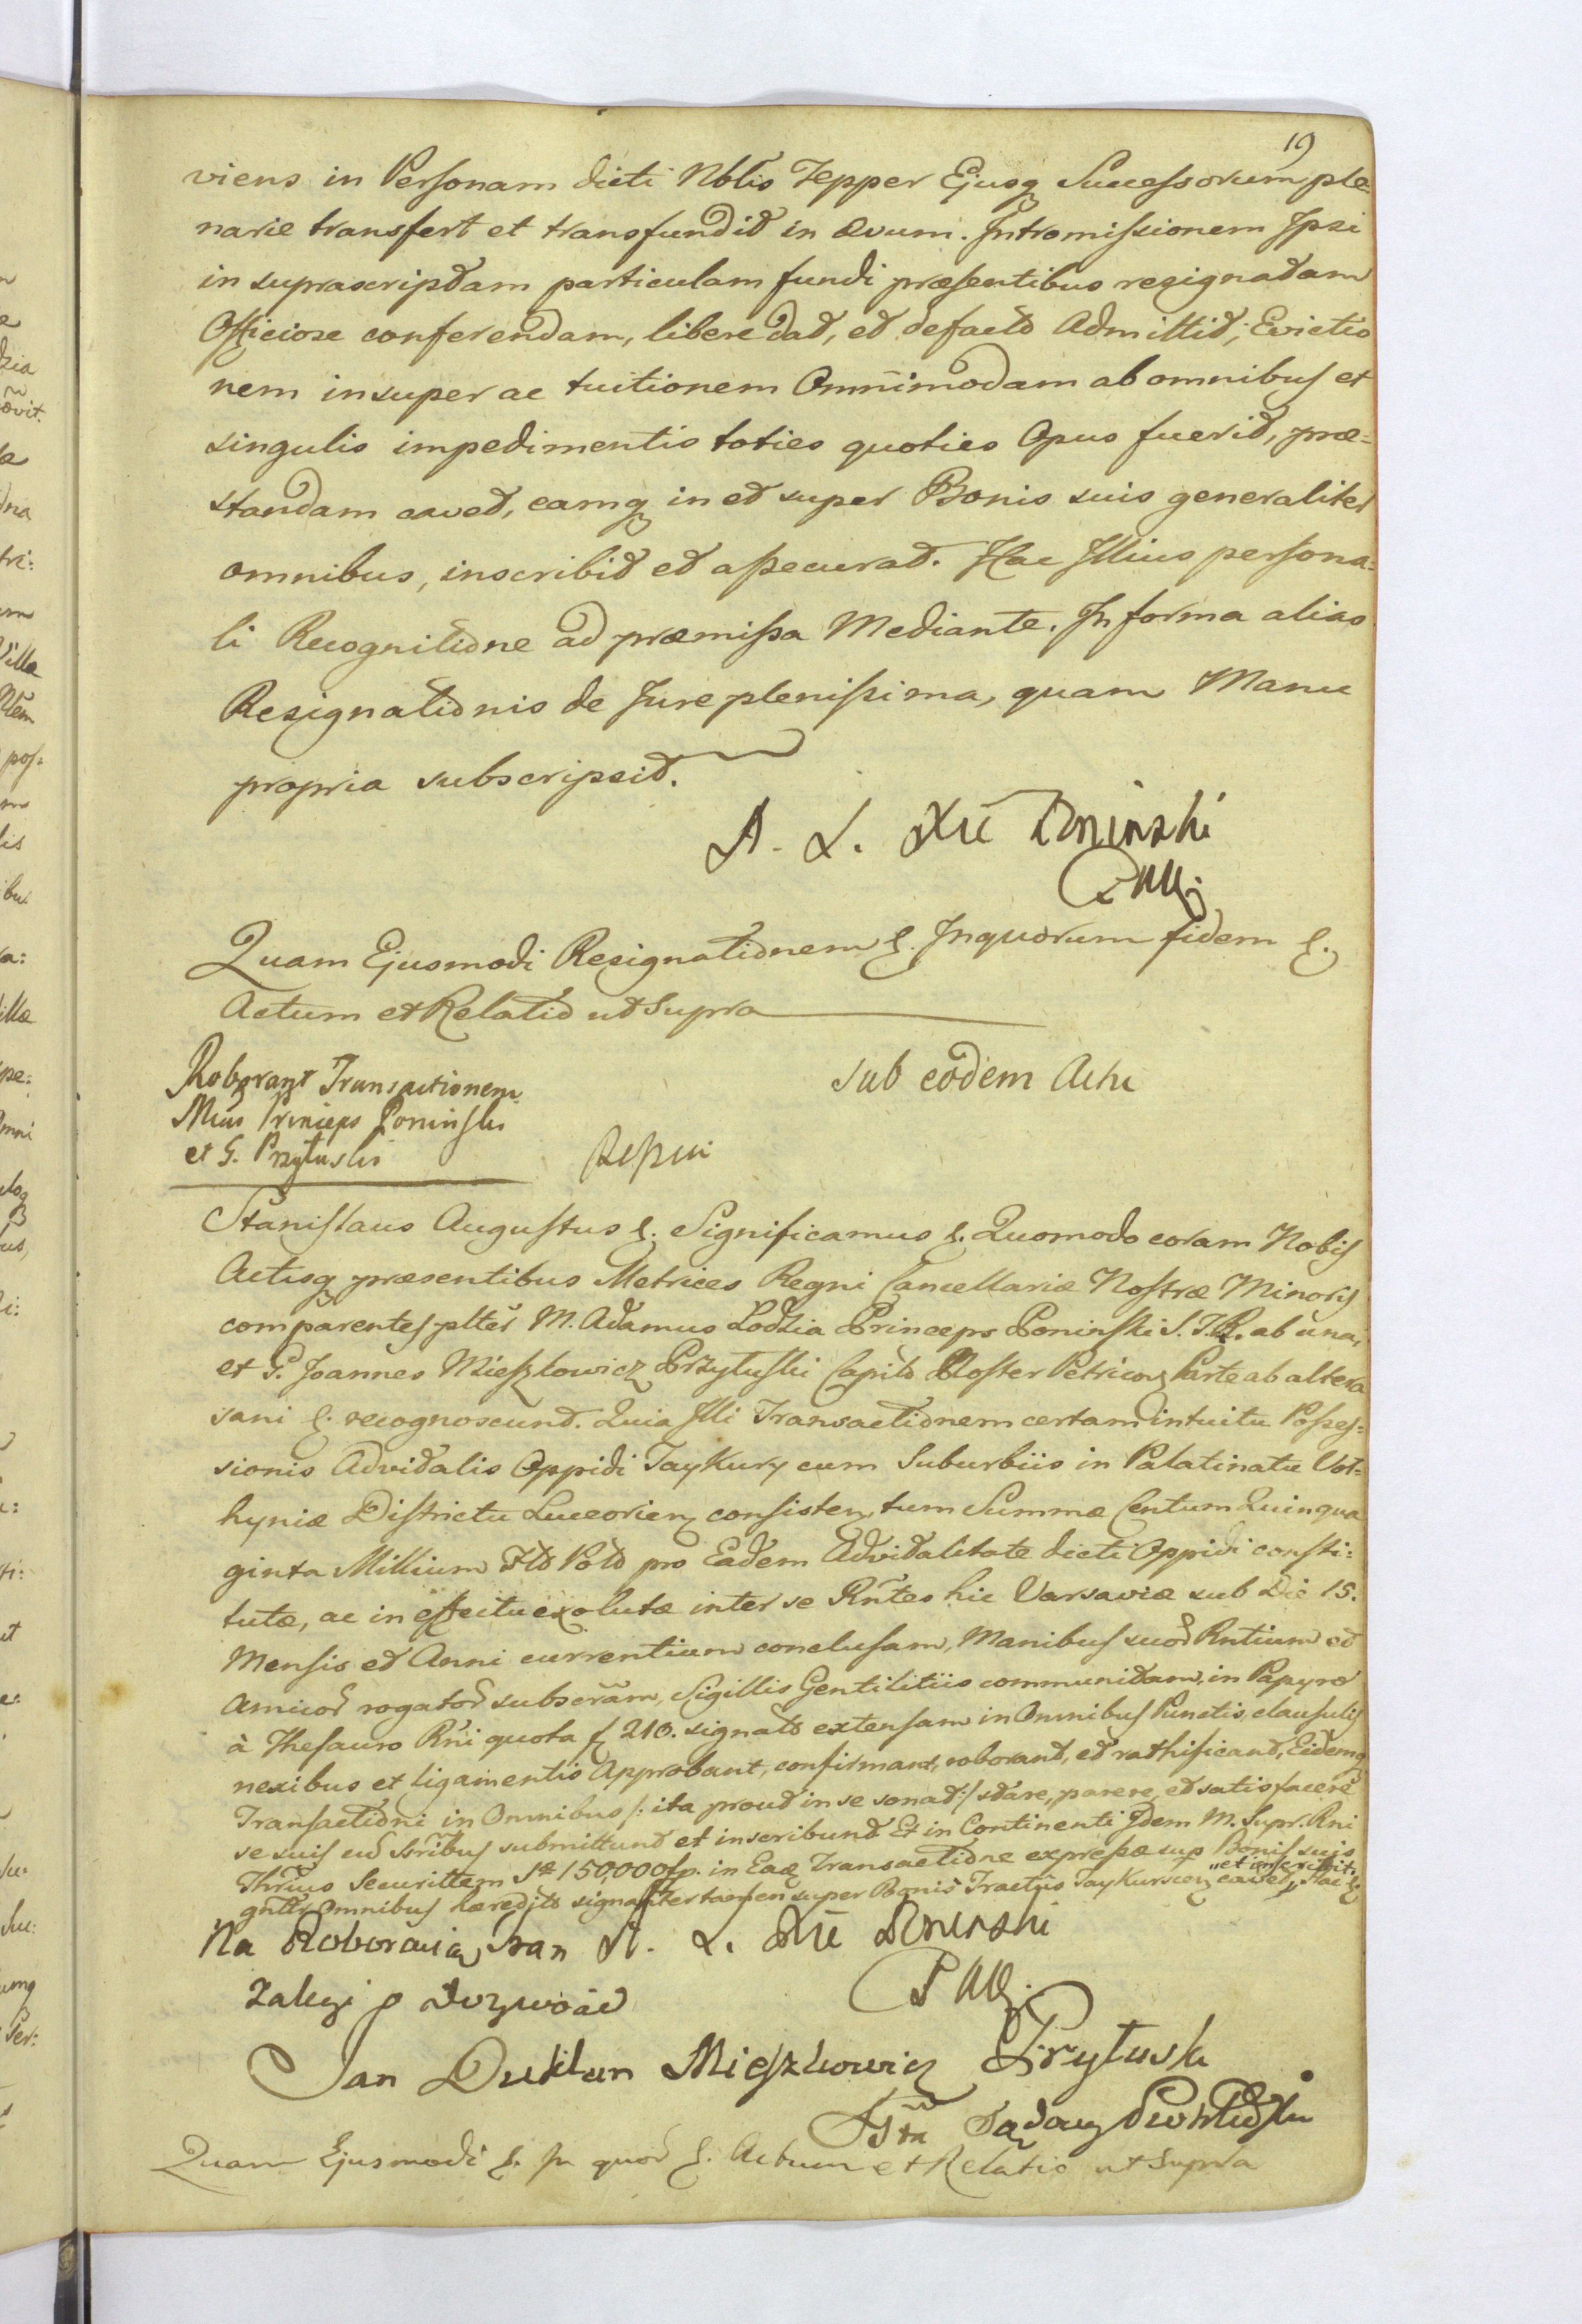 19
viens in Personam dicti Nblis Tepper Ejusq Successorum ple:
narie transfert et transfundit in ævum. Intromissionem Ipsi
in suprascriptam particulam fundi præsentibus resignatam
Officiose conferendam, libere dat, et defacto Admittit; Evictio
nem insuper ac tuitionem Omnimodam ab omnibus et
singulis impedimentis toties quoties Opus fuerit, præ=
standam cavet, eamq in et super Bonis suis generaliter
omnibus, inscribit et assecurat. Hac Illius persona=
li Recognitione ad præmissa Mediante. In forma alias
Resignationis de Jure plenissima, quam Manu
propria subscripsit.
A. Ł. Xże Poninski
PWK
Quam Ejusmodi Resignationem &. Inquorum fidem &.
Actum et Relatio ut Supra
sub eodem Actu
Roborant Transactionem
Mcus Princeps Poninski
et G. Przyłuski
Stanislaus Augustus &. Significamus &. Quomodo coram Nobis
Actisq præsentibus Metrices Regni Cancellariæ Nostræ Minoris
comparentes plter M. Adamus Łodzia Princeps Poninski S. T. R. ab una,
et G. Joannes Mieszkowicz Przyłuski Capito Noster Petricov Parte ab altera
sani &. recognoscunt. Quia Illi Transactionem certam intuitu Posses=
sionis Advitalis Oppidi Taykury cum Suburbiis in Palatinatu Vol=
hyniæ Districtu Luceorien consisten, tum Summæ Centum Quinqua
ginta Millium Flo Polo pro Eadem Advitalitate dicti Oppidi consti:
tutæ, ac in effectu exolutæ inter se Rntes hic Varsaviæ sub Die 15.
Mensis et Anni currentium conclusam, Manibus suor Rntium et
Amicor rogator subscram, Sigillis Gentilitiis communitam, in Papyro
à Thesauro Rni quota f 210. signato extensam in Omnibus Punctis, clausulis
nexibus et ligamentis Approbant, confirmant, roborant, et rathificant, Eidemq
Transactioni in Omnibus /: ita prout in se sonat :/ stare, parere, et satisfacere
se suis ssoribus submittunt et inscribunt. Et in Continenti Idem M. Supr. Rni
Thrius Securittem Sæ 150,000 fp. in Eaq Transactione expressæ sup Bonis suis
gnltr Omnibus hæredito signanter tamen super Bonis Tractus Taykurscen cavet, "et inscribit. Hac &
Na Roboracią A. Ł. Xże Poninski
PWK.
Jan Duklan Mieszkowicz Przyłuski
Quam Ejusmodi &. In quor &. Actum et Relatio ut Supra